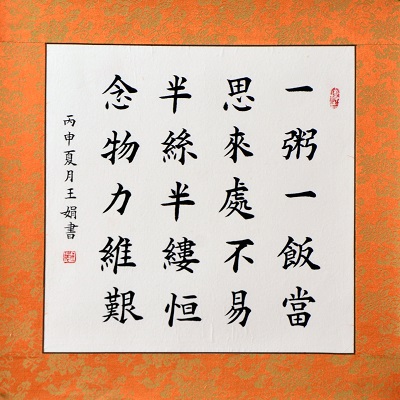 一粥一飯當
思來處不易
半絲半縷恒
念物力維艱
丙申夏月王娟書